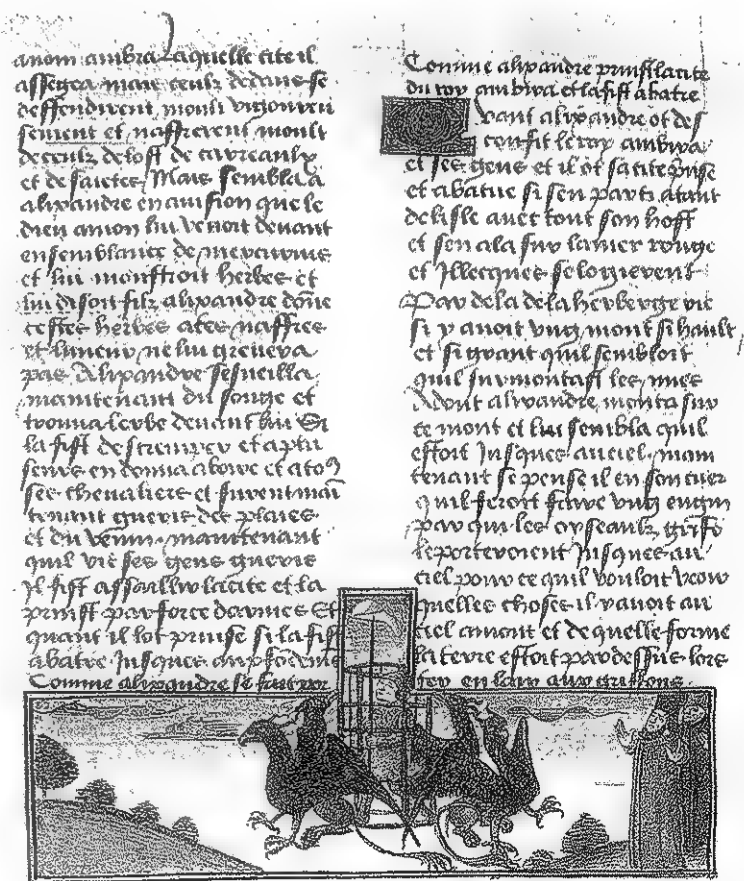 anom ambra Laquelle cite il
assegea mais ceulz dedans se
deffendirent moult vigoureu
sement et naffrerent moult
de ceulz de lost de carreaulx
et de saictes. Mais sembla a
alixandre en auision que le
dieu amon lui venoit deuant
en semblance de mercurius
et lui monstroit herbes et
lui disoit filz alixandre donne
cestes herbes a tes naffres
et luneur ne lui greuera
pas. Alixandre sesueilla
maintenant du songe et
trouua lerbe deuant lui Si
la fist destremper et a plu
seurs en donna a boire et a to9
ses cheualiers et furent mai
tenant gueris des plaies
et du venin. maintenant
quil vit ses gens gueris
Il fist assaillir la cite et la
prinst par force darmes Et
quant il lot prinse si la fist
abatre Jusques au
Comme alixandre se fait
Comme alixandre prinst la cite
du roy ambira et la fist abatre
vant alixandre ot des
confit le roy ambira
et ses gens et il ot sa cite prise
et abatue si sen parti atant
de lisle auec tout son host
et sen ala sur la mer rouge
et Illecques se logierent
Par dela de la herberge
si y auoit vng mont si hault
et si grant quil sembloit
quil surmontast les nues
Adont alixandre monta sur
ce mont et lui sembla quil
estoit Jusques au ciel. main
tenant se pense il en son cuer
quil feroit faire vng engin
par qui les oyseaulx grifs
le porteroient Jusques au
ciel pour ce quil vouloit veoir
quelles choses il y auoit au
ciel amont et de quelle forme
la terre estoit par dessus lors
en lair aux griffons